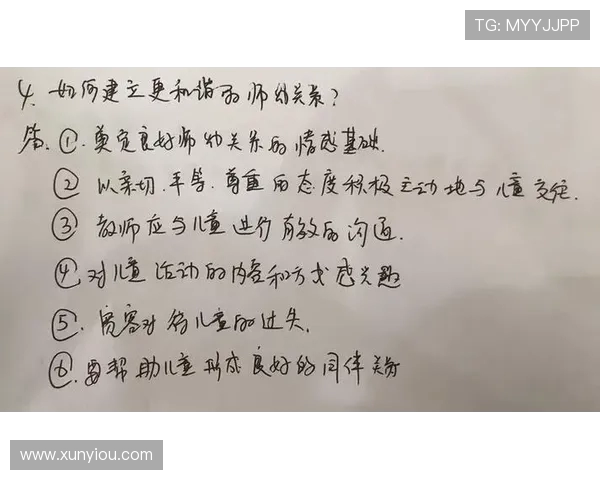 TG: MYYJJPP
4. 如何建立更和谐的师幼关系?
答. ①. 奠定良好师幼关系的情感基础.
② 以亲切.平等.尊重的态度积极主动地与儿童交往.
③ 教师应与儿童进行有效的沟通.
④ 对儿童活动的内容和方式感兴趣
⑤. 宽容对待儿童的过失.
⑥. 要帮助儿童形成良好的同伴关系
www.xunyiou.com